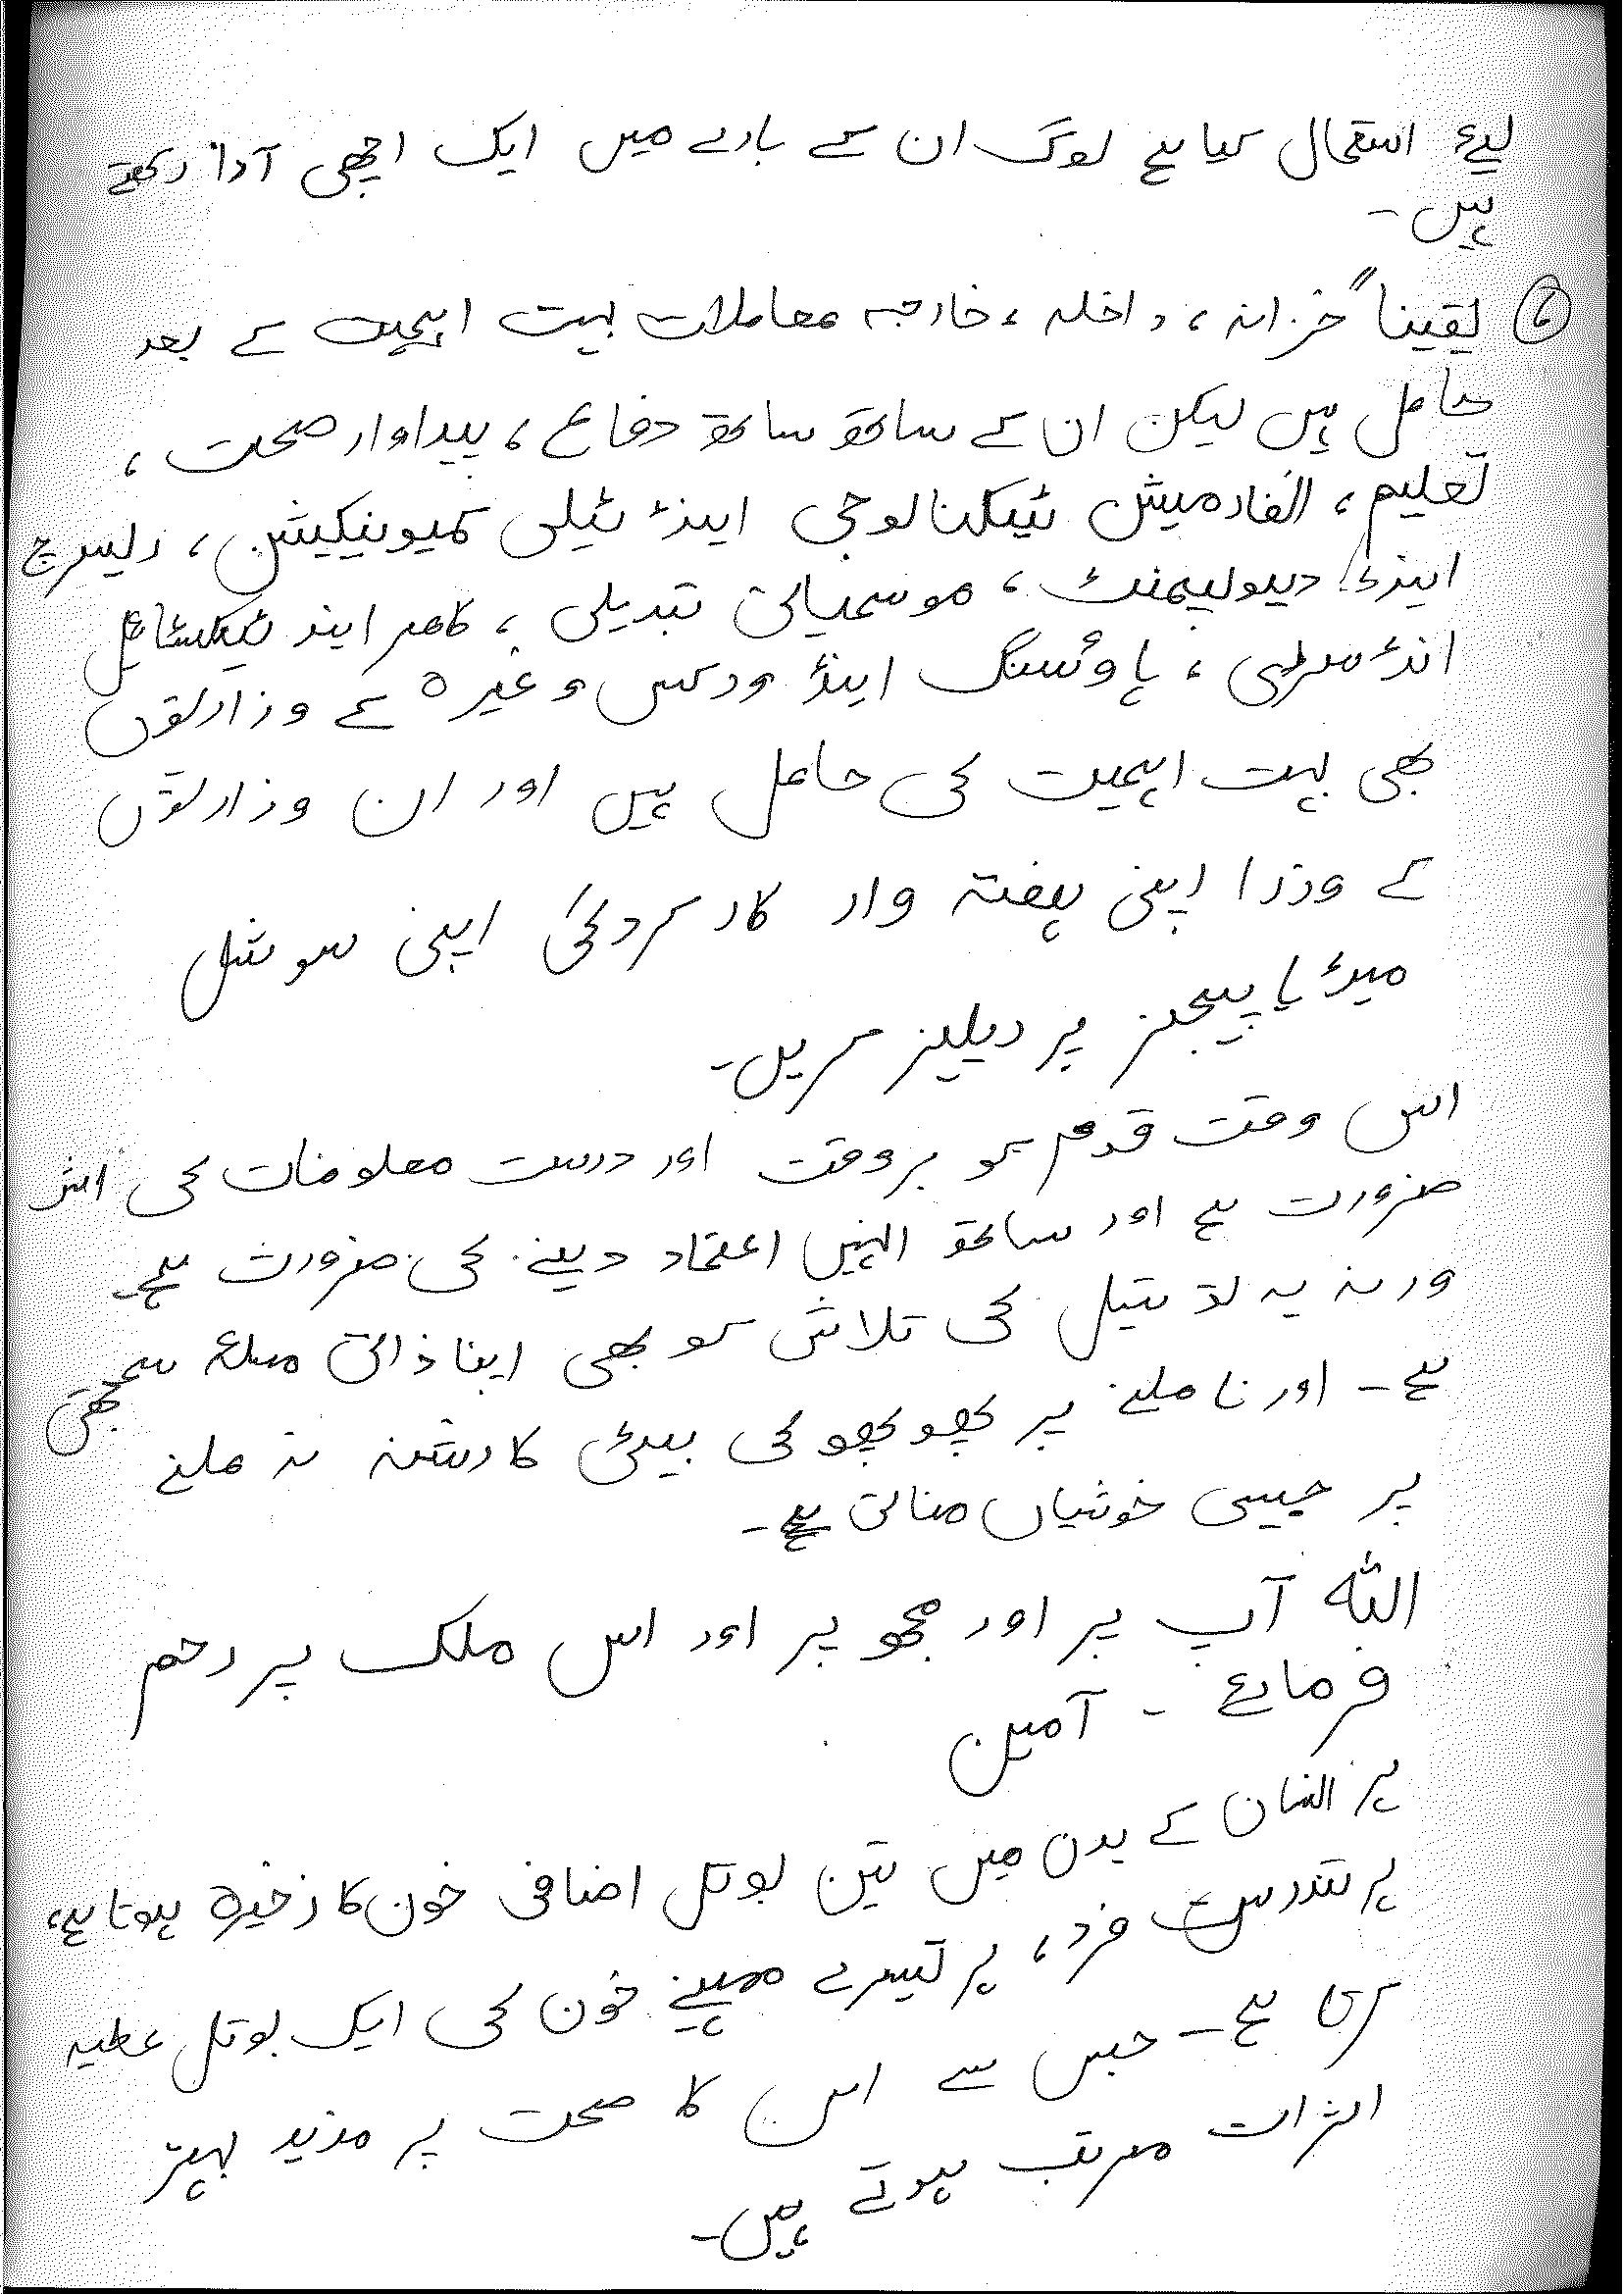 لیئے استعمال کیا ہے لوگ ان کے بارے میں ایک اچھی آراٰ رکھتے
ہیں۔
⑥ یقیناً خزانہ، داخلہ، خارجہ معاملات بہت اہمیت کے بعد
حامل ہیں لیکن ان کے ساتھ ساتھ دفاع، پیداوار صحت،
تعلیم، انفارمیشن ٹیکنالوجی اینڈ ٹیلی کمیونیکیشن، ریسرچ
اینڈ ڈیولپمنٹ، موسمیاتی تبدیلی، کامرز اینڈ ٹیکسٹائل
انڈسٹری، ہاؤسنگ اینڈ ورکس وغیرہ کے وزارتوں
بھی بہت اہمیت کی حامل ہیں اور ان وزارتوں
کے وزرا اپنی ہفتہ وار کارکردگی اپنی سوشل
میڈیا پیجز پر ریلیز کریں۔
اس وقت قوم کو بروقت اور درست معلومات کی اشد
ضرورت ہے اور ساتھ انہیں اعتماد دینے کی ضرورت ہے۔
ورنہ یہ تو تیل کی تلاش کو بھی اپنا ذاتی مسلہ سمجھتی
ہے۔ اور نا ملنے پر پھوپھو کی بیٹی کا رشتہ نہ ملنے
پر جیسی خوشیاں مناتی ہے۔
اللہ آپ پر اور مجھ پر اور اس ملک پر رحم
فرمائے۔ آمین
ہر انسان کے بدن میں تین بوتل اضافی خون کا ذخیرہ ہوتا ہے،
ہر تندرست فرد، ہر تیسرے مہینے خون کی ایک بوتل عطیہ
کرتا ہے۔ جس سے اس کا صحت پر مزید بہتر
اثرات مرتب ہوتے ہیں۔